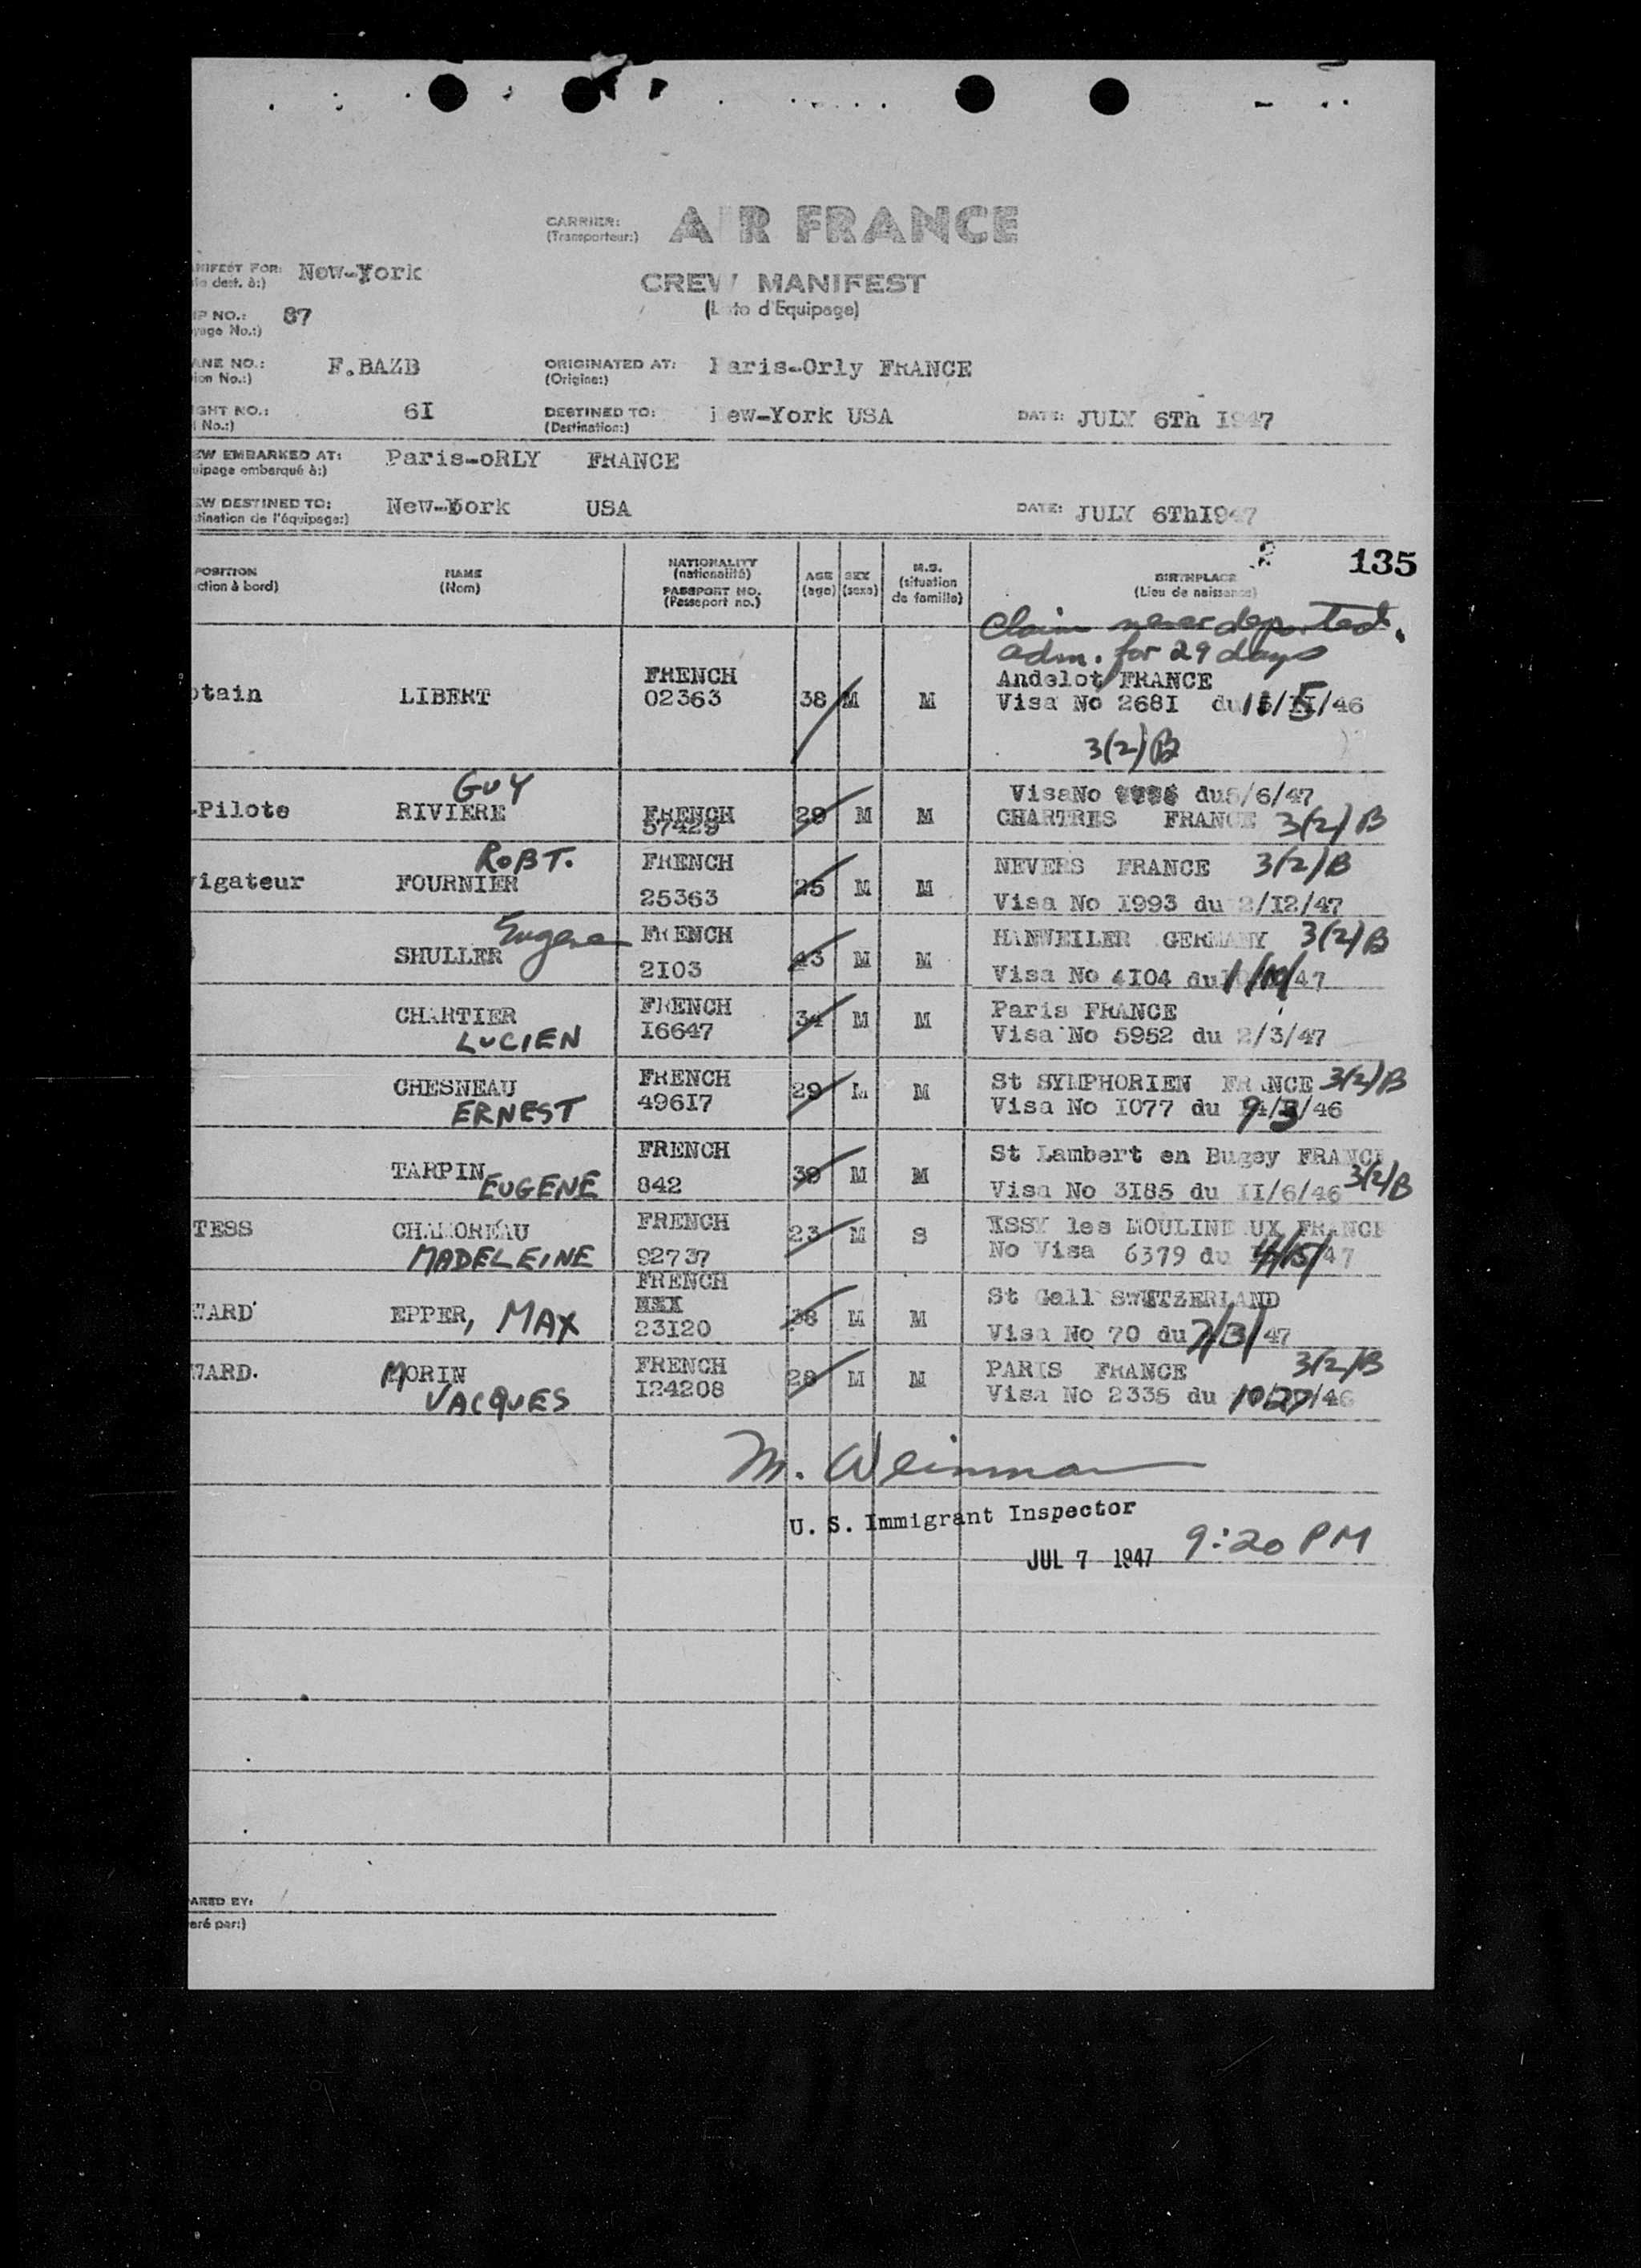 CARRIER: A R FRANCE
(Transporteur:)
NIFEST FOR: New-York
dest. à:)
CREW MANIFEST
(L to d'Equipage)
P NO.: 87
yage No.:)
ANE NO.: F.BAZB
ion No.:)
ORIGINATED AT: Paris-Orly FRANCE
(Origine:)
GHT NO.: 6I
No.:)
DESTINED TO: ew-York USA
(Destination:)
DATE: JULY 6Th 1947
EW EMBARKED AT: Paris-oRLY FRANCE
uipage embarqué à:)
EW DESTINED TO: New-York USA
tination de l'équipage:)
DATE: JULY 6ThI947
135
POSITION
ction à bord)
NAME
(Nom)
NATIONALITY
(nationalité)
PASSPORT NO.
(Passeport no.)
AGE
(age)
SEX
(sexe)
M.S.
(situation
de famille)
BIRTHPLACE
(Lieu de naissance)
Claim never deported.
adm. for 29 days
ptain LIBERT FRENCH 02363 38 M M Andelot FRANCE
Visa No 268I du /5/46
3(2)B
GUY
-Pilote RIVIERE FRENCH 57429 29 M M VisaNo du6/6/47
CHARTRES FRANCE 3(2)B
ROBT.
vigateur FOURNIER FRENCH 25363 25 M M NEVERS FRANCE 3(2)B
Visa No I993 du 2/I2/47
Eugene
SHULLER FRENCH 2I03 43 M M HANWEILER GERMANY 3(2)B
Visa No 4I04 du 1/10/47
CHARTIER FRENCH I6647 34 M M Paris FRANCE
LUCIEN Visa No 5952 du 2/3/47
CHESNEAU FRENCH 496I7 29 M M St SYMPHORIEN FRANCE 3(2)B
ERNEST Visa No I077 du 9/3/46
TARPIN EUGENE FRENCH 842 39 M M St Lambert en Bugey FRANCE
Visa No 3I85 du II/6/46 3(2)B
TESS CHAMOREAU FRENCH 92737 23 M S ISSY les MOULINE UX FRANCE
MADELEINE No Visa 6379 du /15/47
WARD EPPER, MAX FRENCH 23I20 38 M M St Gall SWITZERLAND
Visa No 70 du 7/3/47
WARD. MORIN FRENCH I24208 28 M M PARIS FRANCE 3(2)B
VACQUES Visa No 2335 du 10/27/46
M. Weinman
U. S. Immigrant Inspector
JUL 7 1947 9:20 PM
ARED BY:
aré par:)